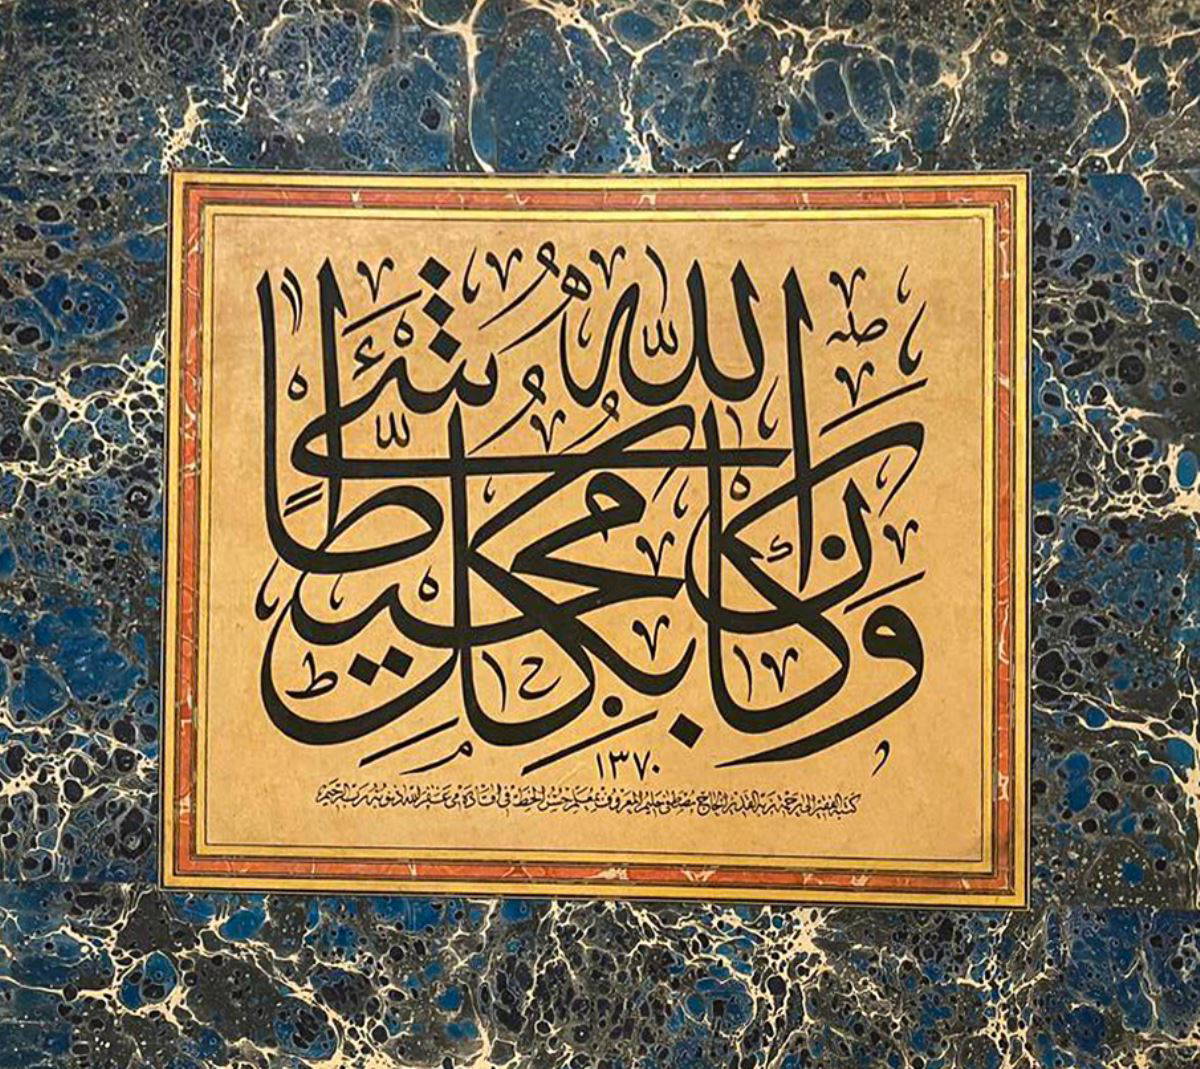 وَكَانَ اللّٰهُ بِكُلِّ شَيْءٍ مُحِيطًا
١٣٧٠
كتبه الفقير إلى رحمة ربه القدير الحاج مصطفى حليم المعروف بمعلم حسن الخط في أقادمي غفر الله ذنوبه